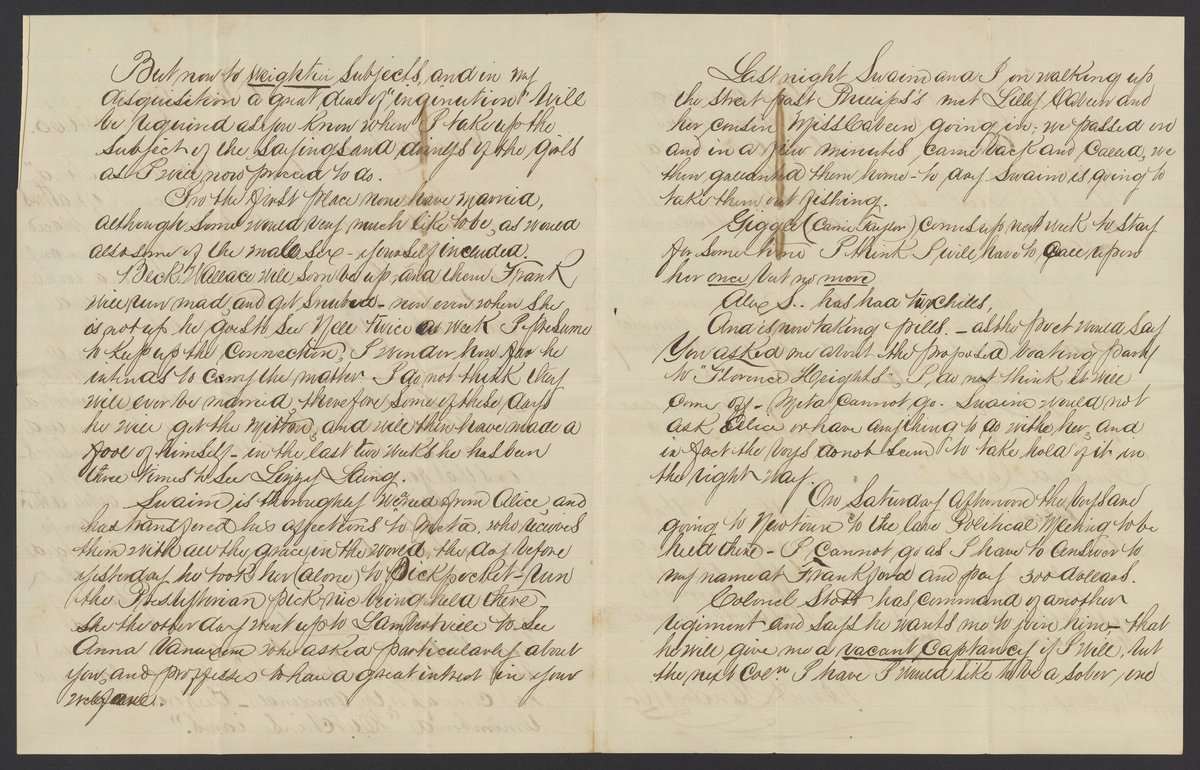 But now to weightier subjects, and in my
disquisition a great deal of "inginuition" will
be required as you know when I take up the
subject of the sayings and doings of the girls
as I will now proceed to do.
In the first place none have married,
although some would very much like to be, as would
also some of the male sex - yourself included.
Beck Wallace will soon be up, and then Frank
will run mad, and get snubed - now even when she
is not up he goes to see Nell twice a week I presume
to keep up the connection, I wonder how far he
intends to carry the matter I do not think they
will ever be married, therefore some of these days
he will get the mitton, and will then have made a
fool of himself - in the last two weeks he has been
three times to see Lizzy Laing.
Swaim is thoroughly weaned from Alice, and
has transfered his affections to Meta, who receives
them with all the grace in the world, the day before
yesterday he took her (alone) to Dickpocket-run
the Presbyterian pick-nic being held there,
She the other day went up to Lambertville to see
Anna Vanuxem who asked particularly about
you, and proffesses to have a great interest in your
welfare.
Last night Swaim and I on walking up
the street past Philips's met Lilly Cabeen and
her cousin Miss Cabeen, going in, we passed on
and in a few minutes, came back and called, we
then gallanted them home - to day Swaim is going to
take them out fishing.
Giggle (Carrie Taylor) comes up next week to stay
for some time I think I will have to call upon
her once but no more
Alex S.. has had chills,
And is now taking pills. - as the poet would say
You asked me about the proposed boating party
to "Florence Heights" I do not think it will
come off - Meta cannot go. Swaim would not
ask Alice or have anything to do with her, and
in fact the boys do not seem to take hold of it in
the right way.
On Saturday afternoon the boys are
going to Newtown to the large Political Meeting to be
held there - I cannot go as I have to answer to
my name at Frankford and pay 300 dollars.
Colonel Stott has command of another
regiment and says he wants me to join him - that
he will give me a vacant Captaincy if I will, but
the next Coln I have I would like to be a sober, one